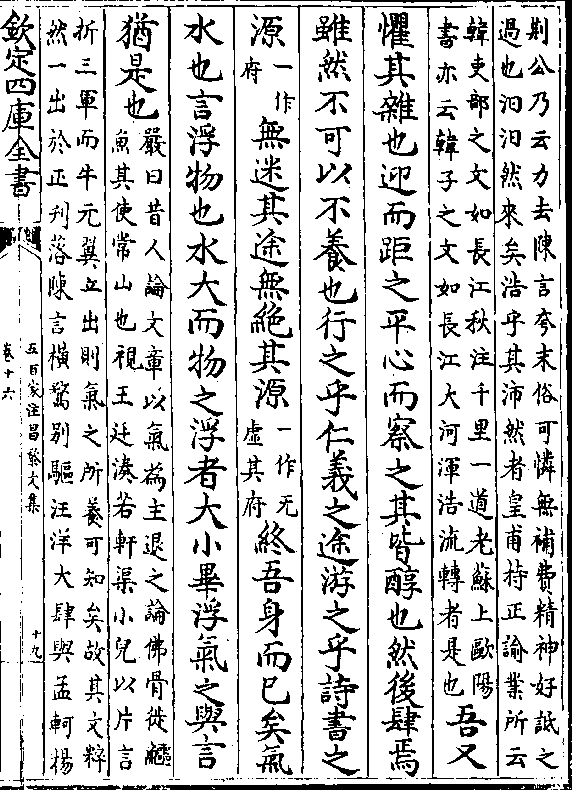 荆公乃云力去陳言夸末俗可憐無補費精神好詆之
過也汩汩然來矣浩乎其沛然者皇甫持正諭業所云
韓吏部之文如長江秋注千里一道老蘇上歐陽
書亦云韓子之文如長江大河渾浩流轉者是也
吾又
懼其雜也迎而距之平心而察之其皆醇也然後肆焉
雖然不可以不養也行之乎仁義之途游之乎詩書之
源一作府無迷其途無絶其源一作无虛其府終吾身而已矣氣
水也言浮物也水大而物之浮者大小畢浮氣之與言
猶是也
嚴曰昔人論文章以氣為主退之論佛骨徙鱷
魚其使常山也視王廷湊若軒渠小兒以片言
折三軍而牛元翼立出則氣之所養可知矣故其文粹
然一出於正刋落陳言横騖别驅汪洋大肆與孟軻楊
欽定四庫全書
五百家注昌黎文集
卷十六
十九